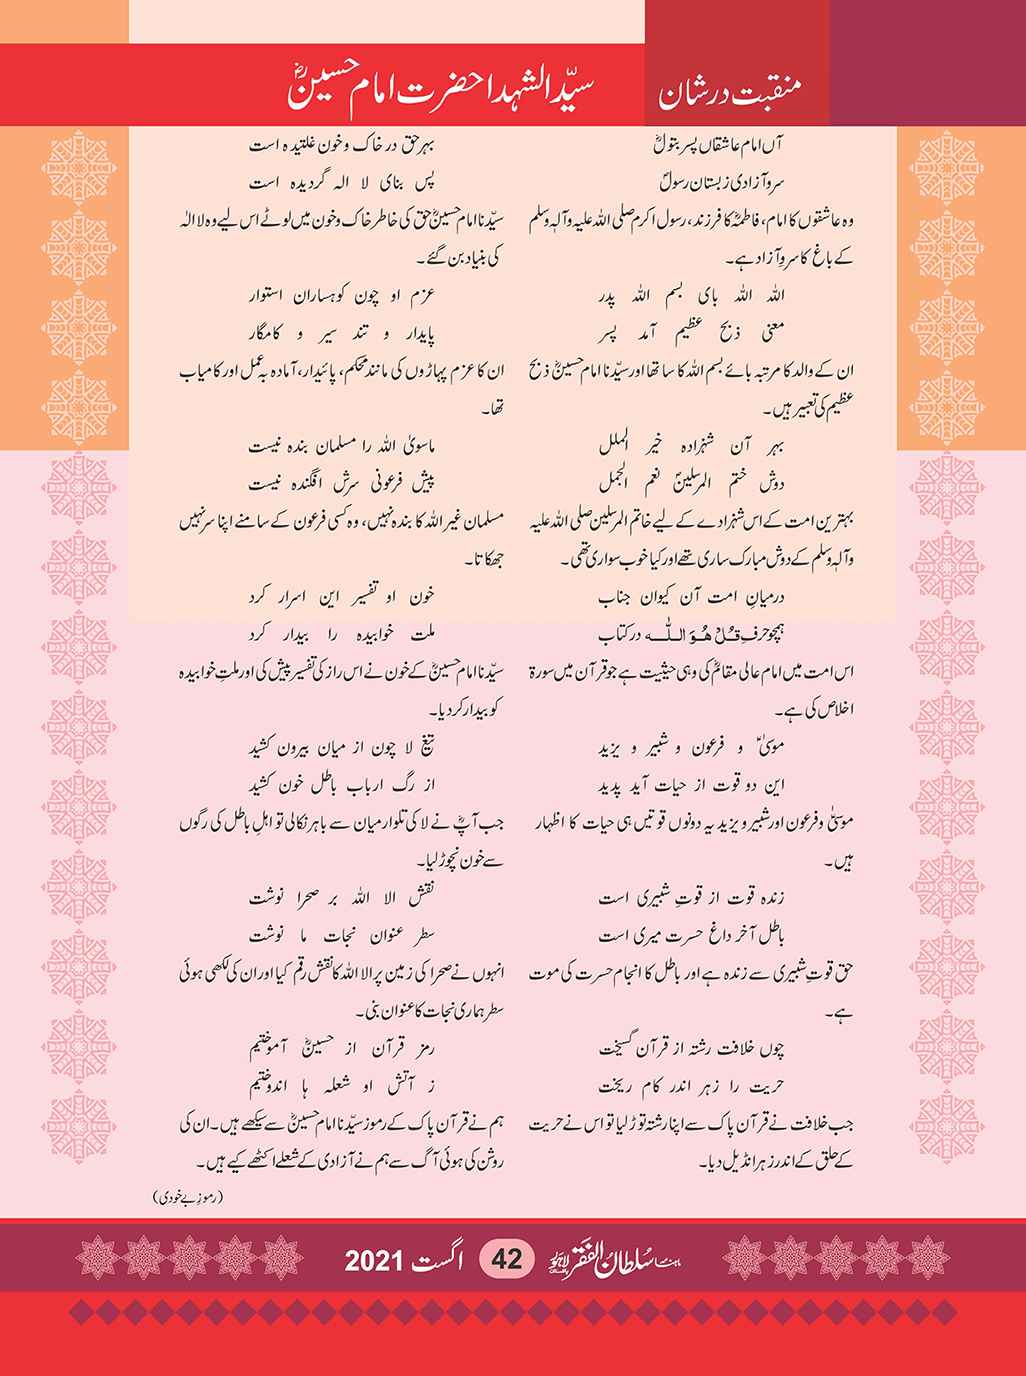 منقبت درشان
سیّد الشہدا حضرت امام حسینؓ
آں امام عاشقاں پسر بتولؓ
سرو آزادی ز بستان رسولؐ
وہ عاشقوں کا امام، فاطمہؓ کا فرزند، رسول اکرم صلی اللہ علیہ وآلہٖ وسلم
کے باغ کا سروِ آزاد ہے۔
اللہ اللہ بای بسم اللہ پدر
معنی ذبح عظیم آمد پسر
ان کے والد کا مرتبہ بائے بسم اللہ کا سا تھا اور سیّدنا امام حسینؓ ذبح
عظیم کی تعبیر ہیں۔
بہر آن شہزادہ خیر الملل
دوش ختم المرسلینؐ نعم الجمل
بہترین امت کے اس شہزادے کے لیے خاتم المرسلین صلی اللہ علیہ
وآلہٖ وسلم کے دوش مبارک ساری تھے اور کیا خوب سواری تھی۔
درمیانِ امت آن کیوان جناب
ہمچو حرفِ قُلْ ھُوَ اللّٰہ در کتاب
اس امت میں امام عالی مقامؓ کی وہی حیثیت ہے جو قرآن میں سورۃ
اخلاص کی ہے۔
موسیٰؑ و فرعون و شبیر و یزید
این دو قوت از حیات آید پدید
موسیٰؑ و فرعون اور شبیر و یزید یہ دونوں قوتیں ہی حیات کا اظہار
ہیں۔
زندہ قوت از قوتِ شبیری است
باطل آخر داغ حسرت میری است
حق قوتِ شبیری سے زندہ ہے اور باطل کا انجام حسرت کی موت
ہے۔
چوں خلافت رشتہ از قرآن گسیخت
حریت را زہر اندر کام ریخت
جب خلافت نے قرآن پاک سے اپنا رشتہ توڑ لیا تو اس نے حریت
کے حلق کے اندر زہر انڈیل دیا۔
بہر حق در خاک و خون غلتیدہ است
پس بنای لا الہ گردیدہ است
سیّدنا امام حسینؓ حق کی خاطر خاک و خون میں لوٹے اس لیے وہ لا الٰہ
کی بنیاد بن گئے۔
عزم او چون کوہساران استوار
پایدار و تند سیر و کامگار
ان کا عزم پہاڑوں کی مانند محکم، پائیدار، آمادہ بہ عمل اور کامیاب
تھا۔
ماسویٰ اللہ را مسلمان بندہ نیست
پیش فرعونی سرش افگندہ نیست
مسلمان غیر اللہ کا بندہ نہیں، وہ کسی فرعون کے سامنے اپنا سر نہیں
جھکاتا۔
خون او تفسیر این اسرار کرد
ملت خوابیدہ را بیدار کرد
سیّدنا امام حسینؓ کے خون نے اس راز کی تفسیر پیش کی اور ملتِ خوابیدہ
کو بیدار کر دیا۔
تیغ لا چون از میان بیرون کشید
از رگ ارباب باطل خون کشید
جب آپؓ نے لا کی تلوار میان سے باہر نکالی تو اہلِ باطل کی رگوں
سے خون نچوڑ لیا۔
نقش الا اللہ بر صحرا نوشت
سطر عنوان نجات ما نوشت
انہوں نے صحرا کی زمین پر الا اللہ کا نقش رقم کیا اور ان کی لکھی ہوئی
سطر ہماری نجات کا عنوان بنی۔
رمز قرآن از حسینؓ آموختیم
ز آتش او شعلہ ہا اندوختیم
ہم نے قرآن پاک کے رموز سیّدنا امام حسینؓ سے سیکھے ہیں۔ ان کی
روشن کی ہوئی آگ سے ہم نے آزادی کے شعلے اکٹھے کیے ہیں۔
(رموزِ بے خودی)
ماہنامہ سُلطان الفقر لاہور پاکستان 42 اگست 2021